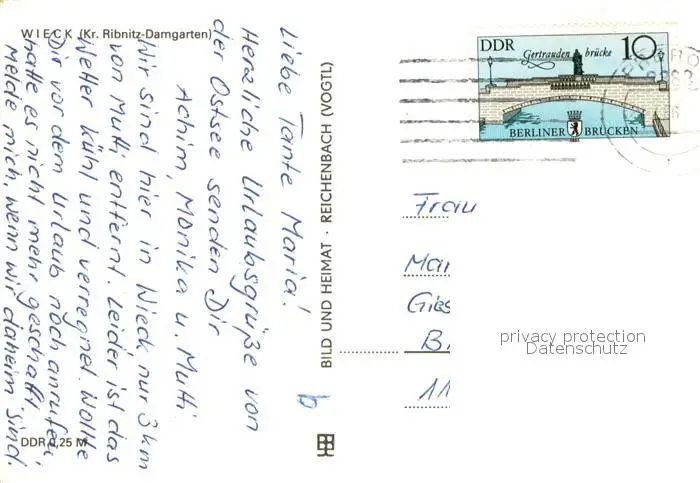 WIECK (Kr. Ribnitz-Damgarten)
Liebe Tante Maria!
Herzliche Urlaubsgrüße von
der Ostsee senden Dir
Achim, Monika u. Mutti
Wir sind hier in Wieck nur 3 km
von Mutti entfernt. Leider ist das
Wetter kühl und verregnet. Wollte
Dir vor dem Urlaub noch anrufen,
hatte es nicht mehr geschafft.
Melde mich, wenn wir daheim sind.
DDR 0,25 M
BILD UND HEIMAT · REICHENBACH (VOGTL)
DDR
Gertraudenbrücke
10
BERLINER BRÜCKEN
Frau
Mar
Gies
B.
11
privacy protection
Datenschutz